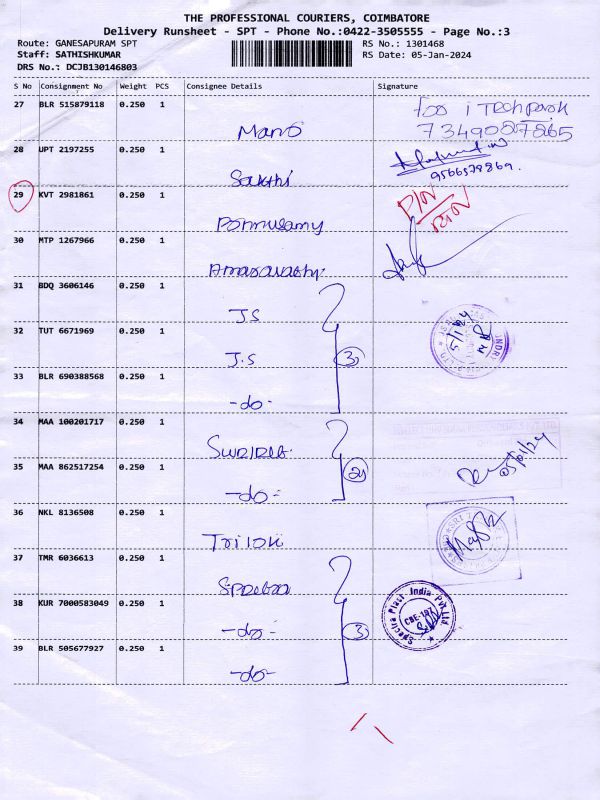 THE PROFESSIONAL COURIERS, COIMBATORE
Delivery Runsheet - SPT - Phone No.:0422-3505555 - Page No.:3
Route: GANESAPURAM SPT
RS No.: 1301468
Staff: SATHISHKUMAR
RS Date: 05-Jan-2024
DRS No.: DCJB130146803
S No Consignment No Weight PCS Consignee Details Signature
27 BLR 515879118 0.250 1
Mano
7349087865
28 UPT 2197255 0.250 1
Sakthi
9566578869.
29 KVT 2981861 0.250 1
Ponnusamy
30 MTP 1267966 0.250 1
31 BDQ 3606146 0.250 1
JS
5/1/24
32 TUT 6671969 0.250 1
J.S
3
33 BLR 690388568 0.250 1
-do-
34 MAA 100201717 0.250 1
05/01/24
35 MAA 862517254 0.250 1
-do-
2
36 NKL 8136508 0.250 1
Trilok
37 TMR 6036613 0.250 1
38 KUR 7000583049 0.250 1
-do-
3
Spectra Plast India Pvt Ltd
CBE-197
39 BLR 505677927 0.250 1
-do-